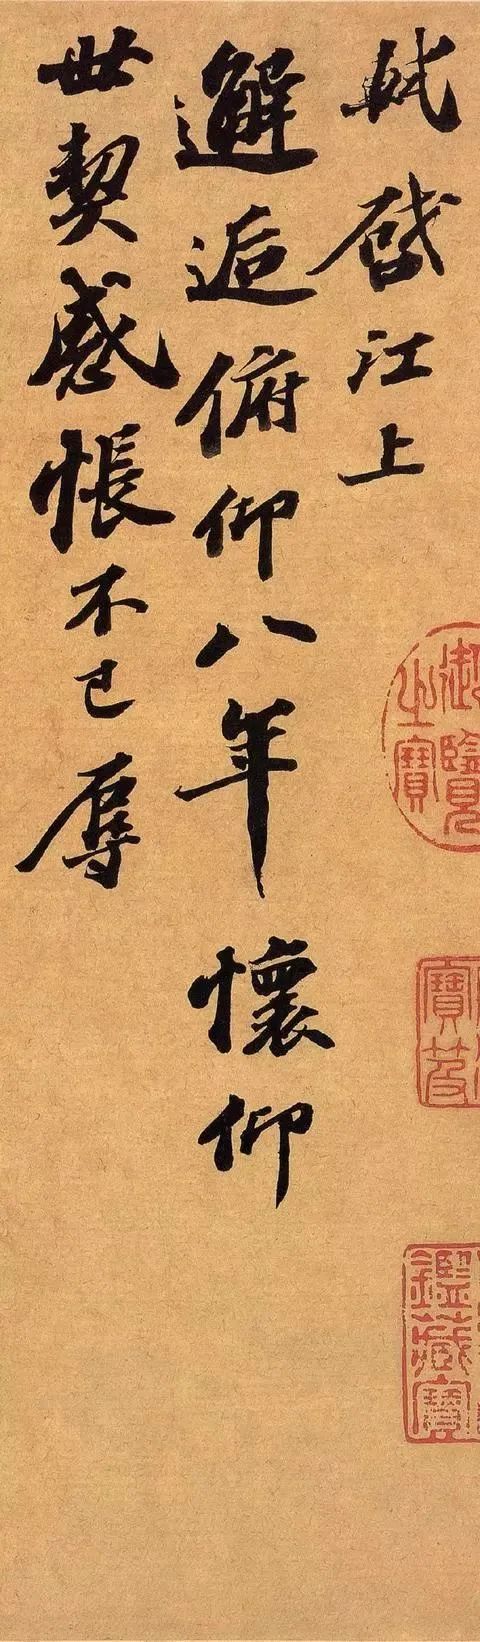 軾啓江上
邂逅俯仰八年懷仰
世契感悵不已辱
御覽之寶
鑑藏寶